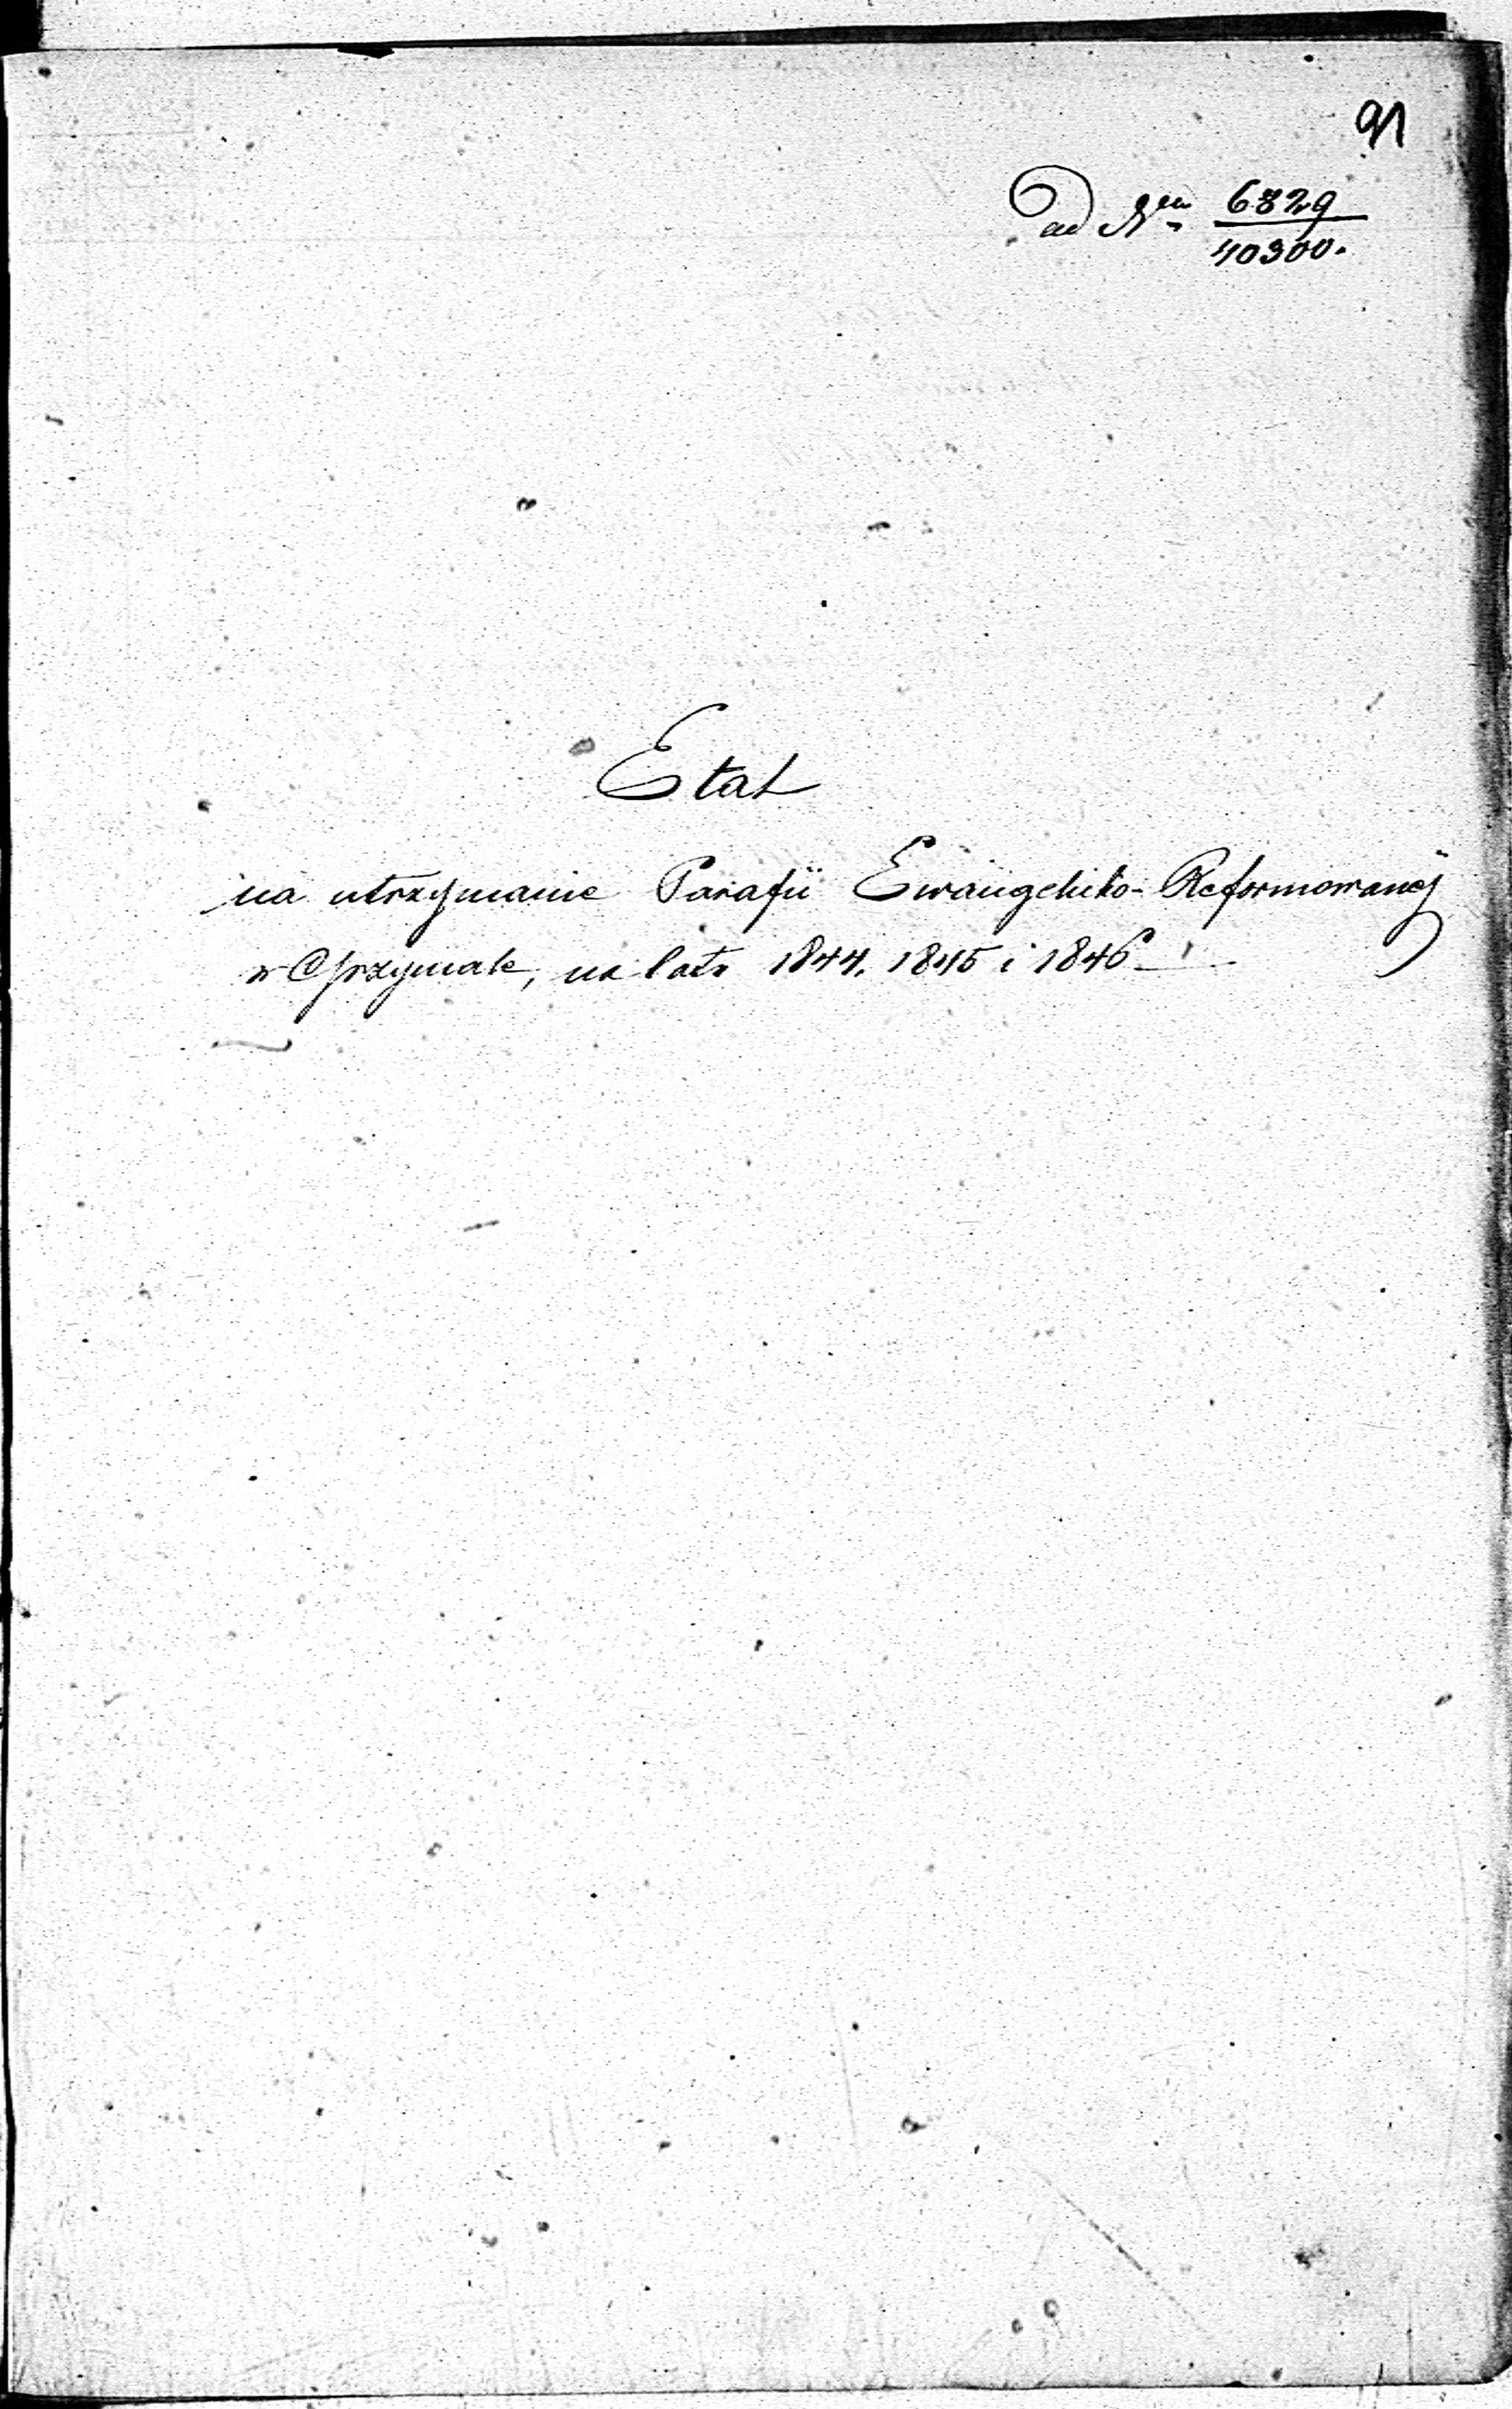 91
ad N. 6829
40300.
Etat
na utrzymanie Parafii Ewangelicko-Reformowanej
w na lata 1844. 1845 i 1846